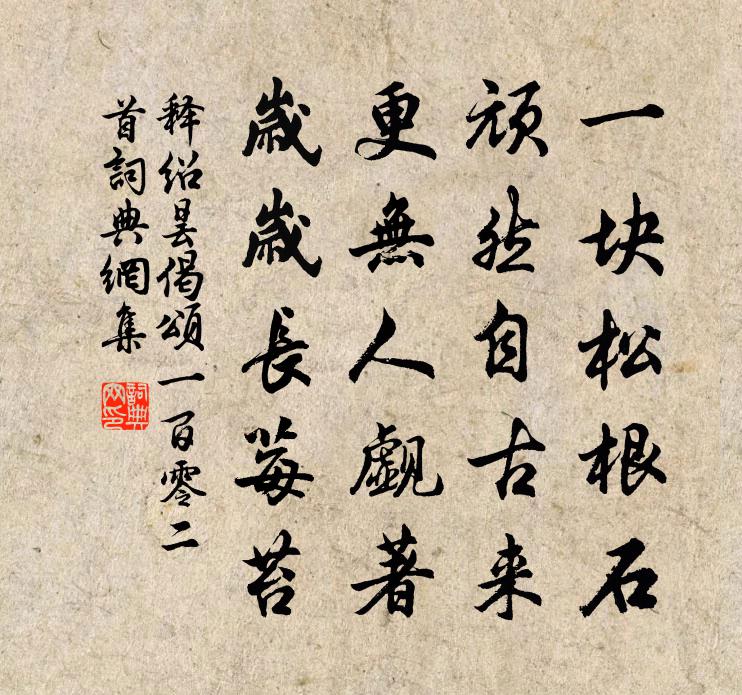 一块松根石
頑然自古来
更無人覷著
歲歲長莓苔
释绍昙偈頌一百零二
首詞典網集
詞典網印